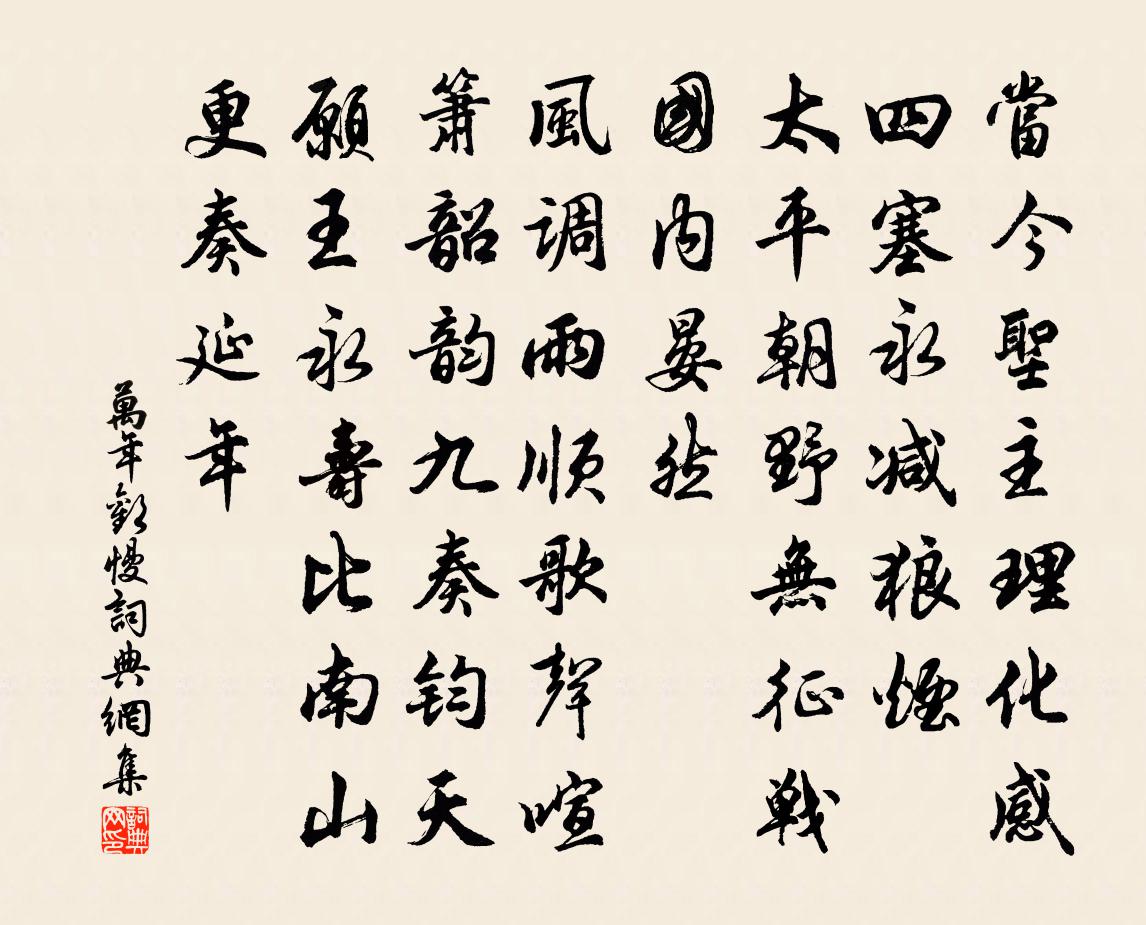 當今聖主理化感
四塞永減狼煙
太平朝野無征戰
國內晏然
風調雨順歌聲喧
簫韶韻九奏鈞天
願王永壽比南山
更奏延年
萬年歡慢詞典網集
詞典网印